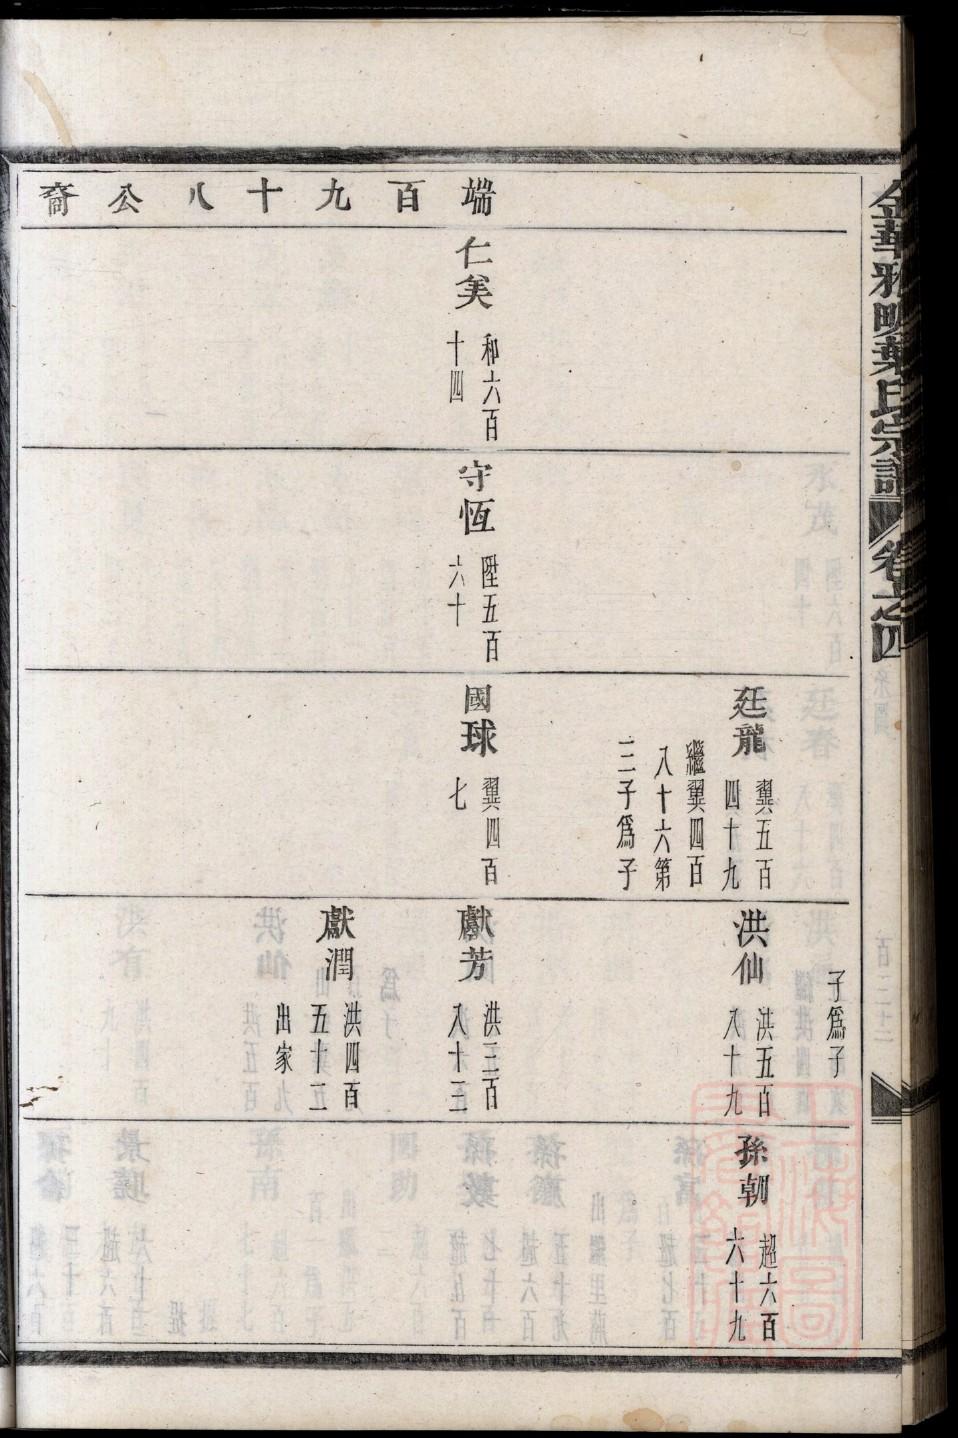 金華雅明葉氏宗譜 卷之四
端百九十八公裔
仁美
和六百
十四
守恆
陞五百
六十
廷龍
翼五百
四十九
繼翼四百
八十六第
三子爲子
國球
翼四百
七
子爲子
洪仙
洪五百
八十九
獻芳
洪三百
八十三
獻潤
洪四百
五十二
出家
孫朝
超六百
六十九